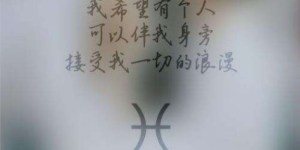 我希望有个人
可以伴我身旁
接受我一切的浪漫